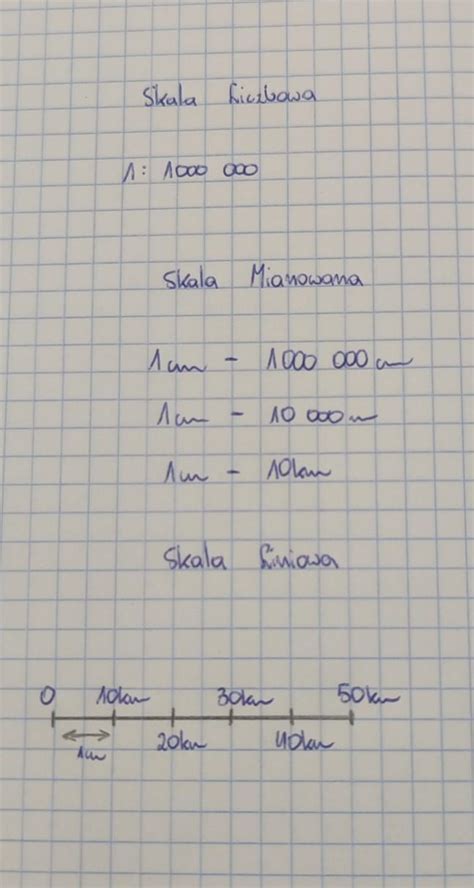 Skala Liczbowa
1: 1000 000
Skala Mianowana
1cm - 1000 000 cm
1cm - 10 000 m
1cm - 10km
Skala Liniowa
0 10km 30km 50km
20km 40km
1cm